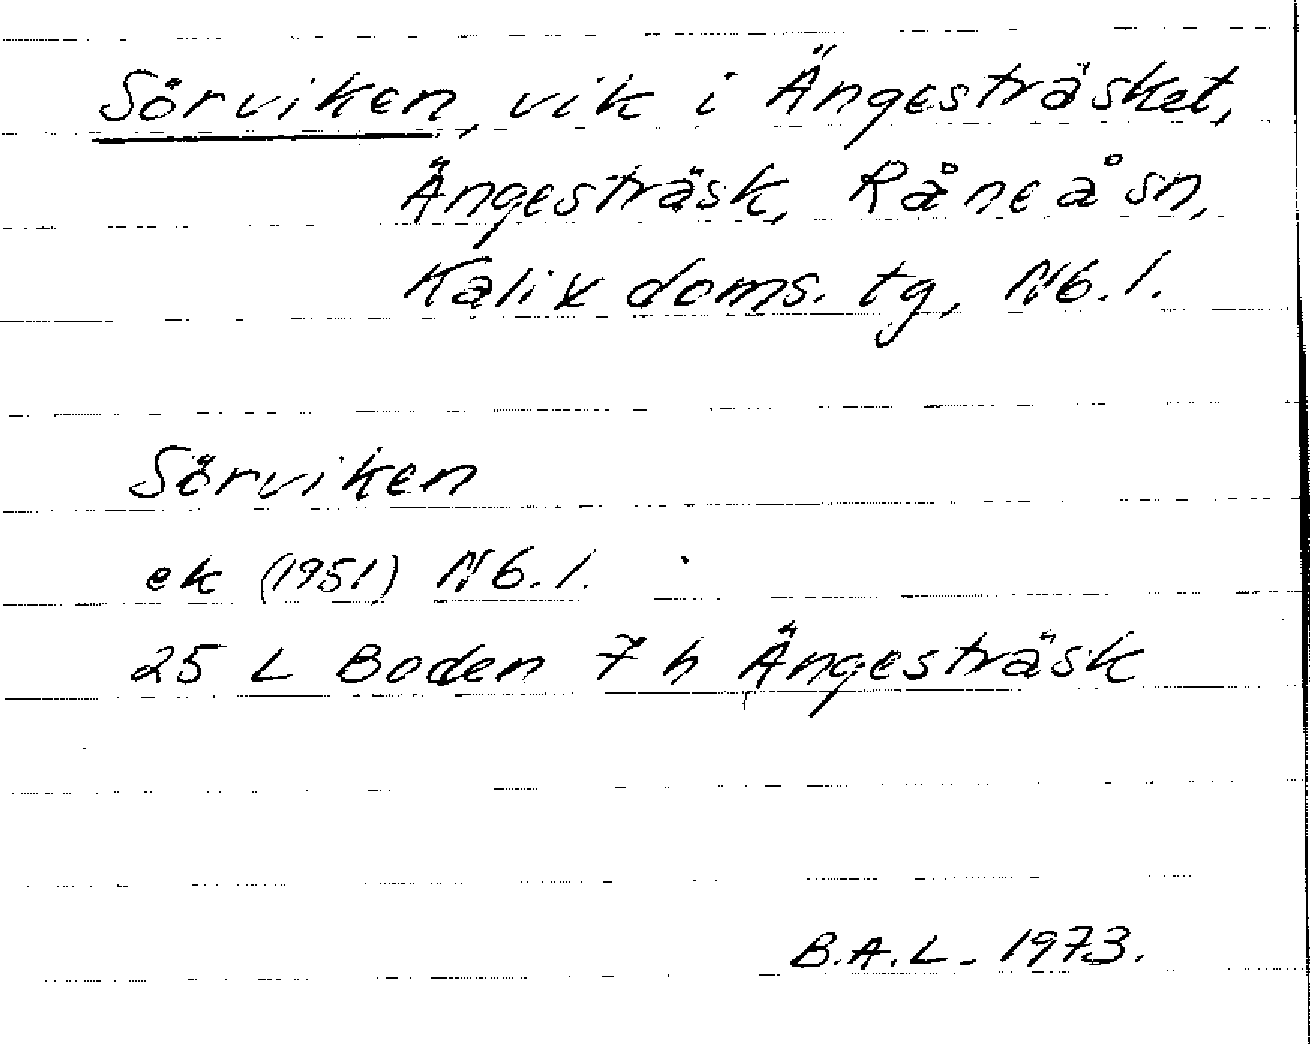 Sörviken, vik i Ängesträsket,
Ängesträsk, Råneå sn,
Kalix doms. tg, Nb. l.
Sörviken
ek (1951) Nb. l.
25 L Boden 7 h Ängesträsk
B.A.L. 1973.